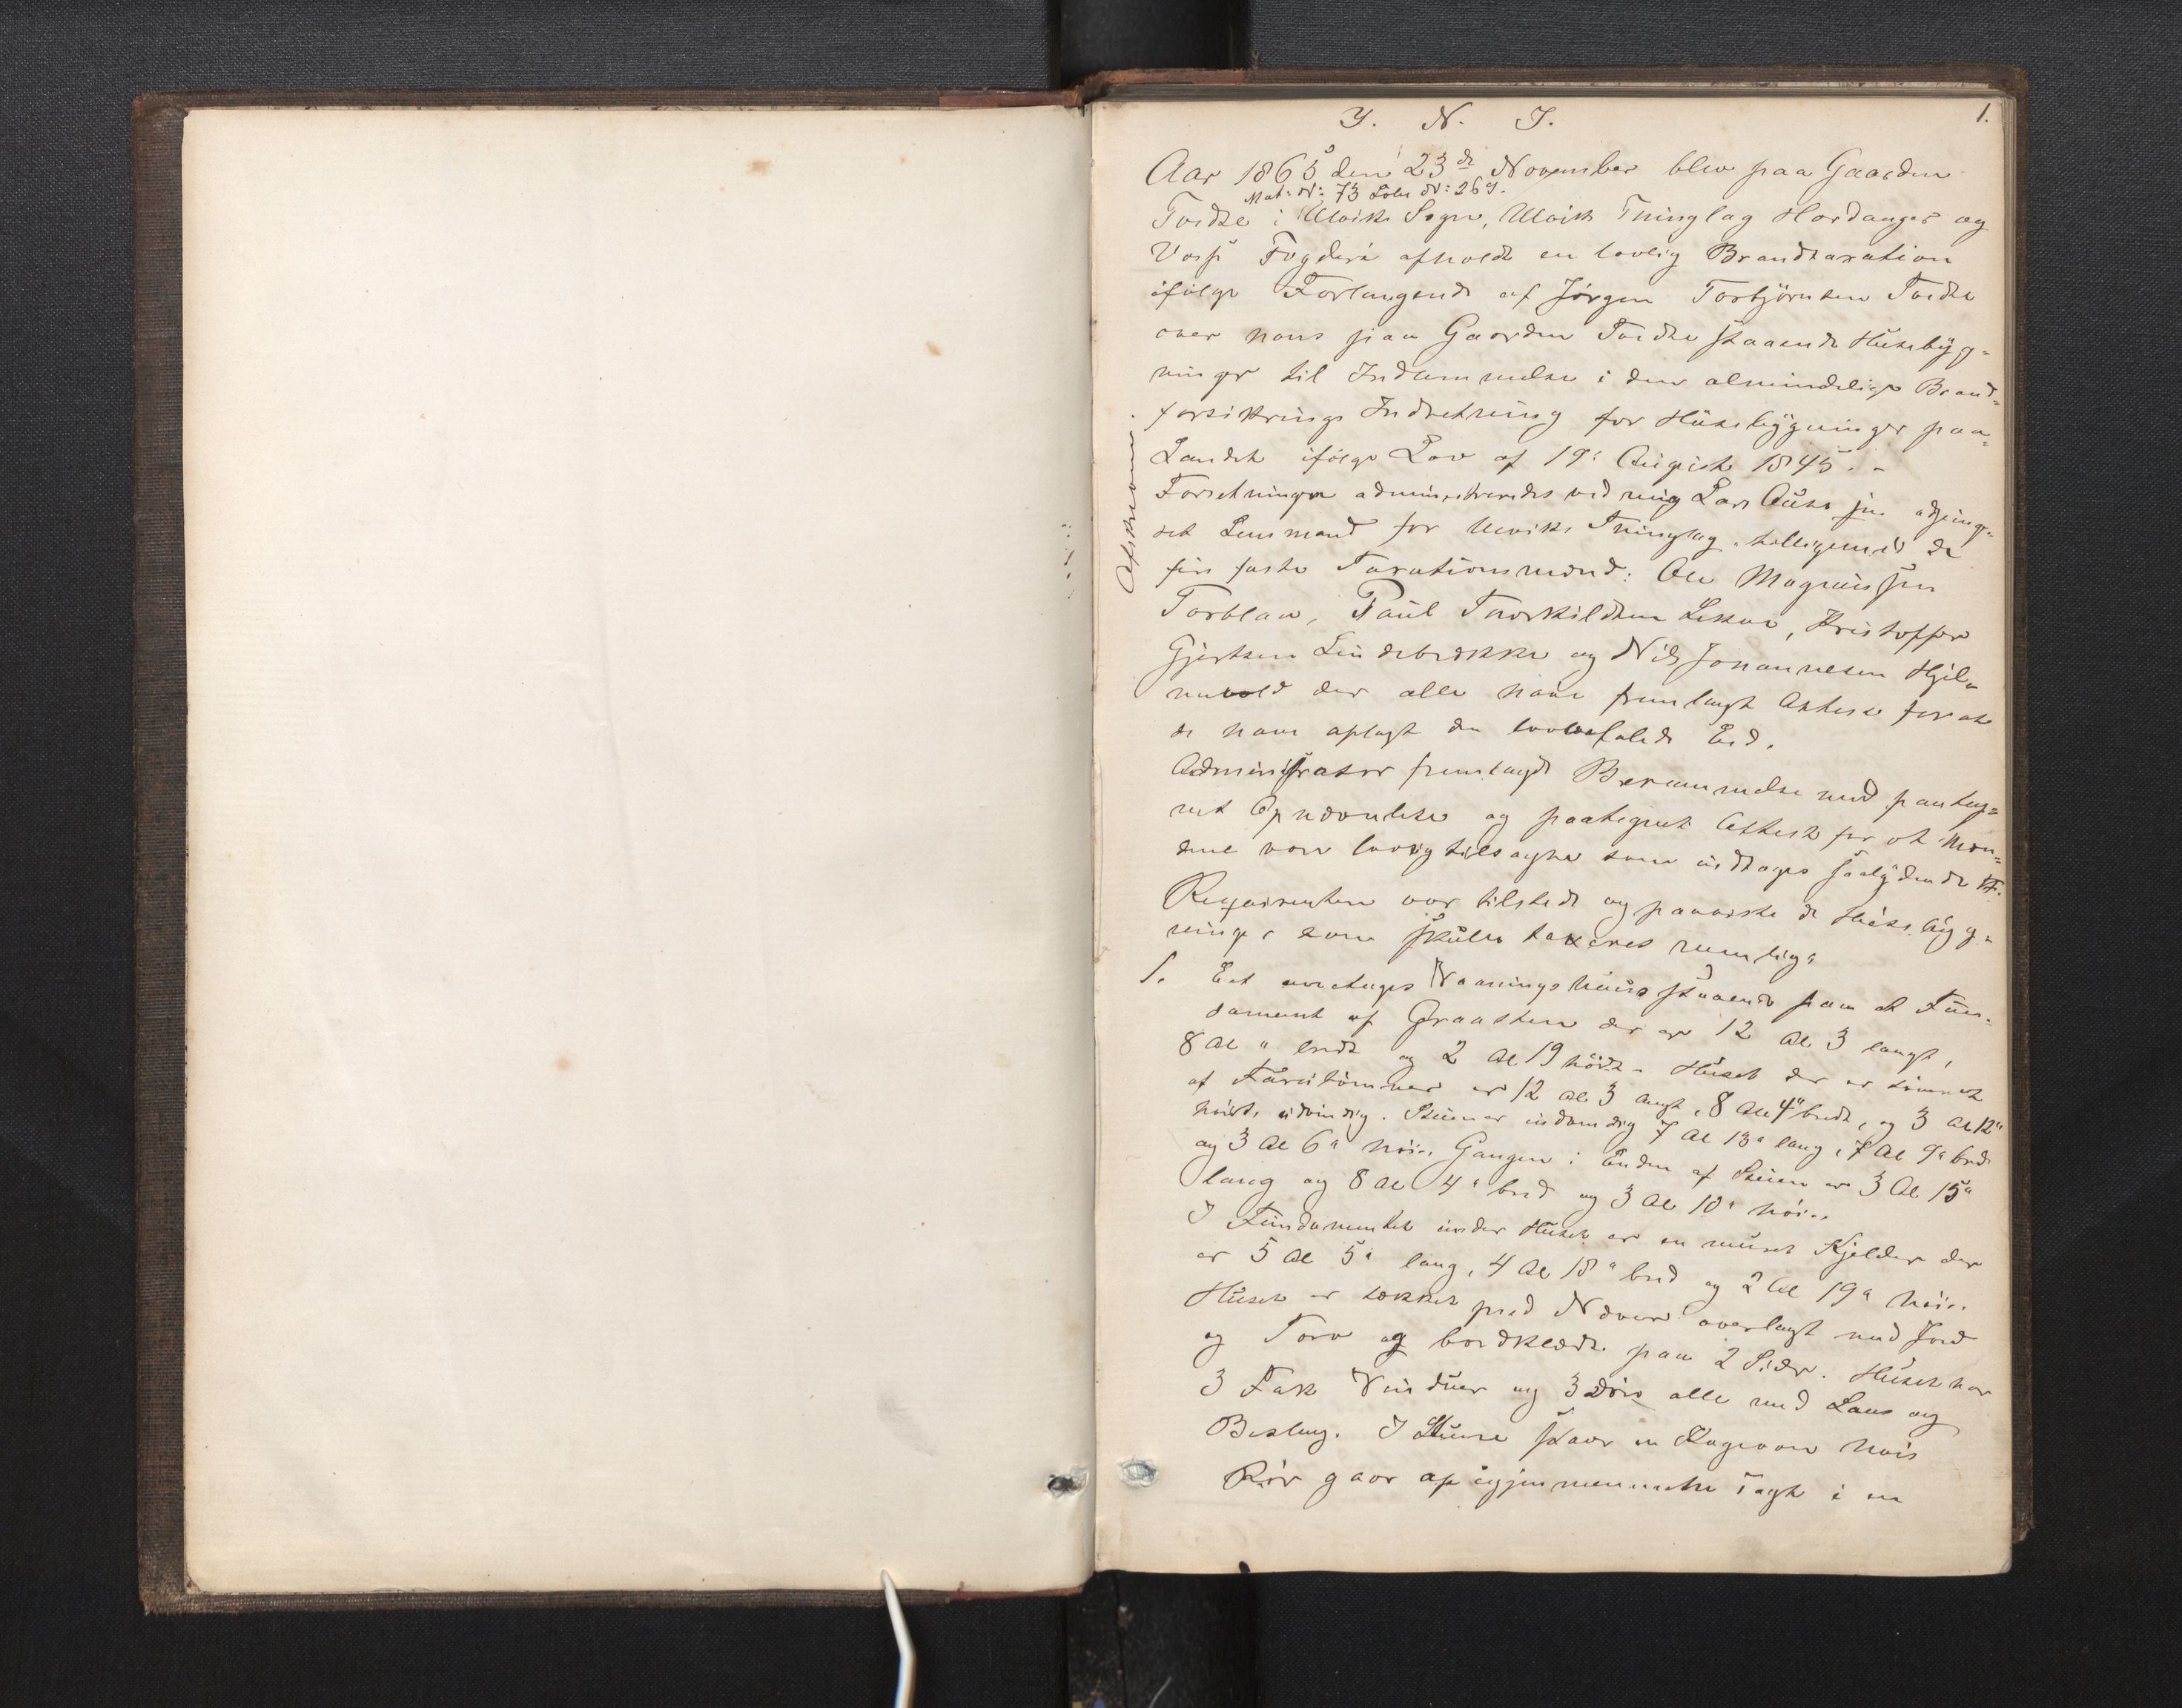 1.
J. N. J.
Aar 1865 den 23de November blev paa Gaarden
Mat: N: 73 Løbe N: 269.
Tvedte i Ulviks Sogn, Ulviks Thinglag Hardanger og
Voss Fogderi afholdt en lovlig Brandtaxation
ifølge Forlangende af Jørgen Torbjørnsen Tvedte
over hans paa Gaarden Tvedte staaende Husebyg-
ninger til Indlemmelse i den almindelige Brand-
forsikrings Indretning for Husebygninger paa
Landet ifølge Lov af 19de August 1845.-
Forretningen administreredes ved mig Lars jun adjung-
eret Lensmand for Ulviks Thinglag tilligemed de
fire faste Taxationsmænd: Ole Magnussen
Torblaa, Paul Thorkildsen Lekve, Kristoffer
Gjertsen Lindebrække og Nils Johannesen Hjel-
mevold der alle have fremlagt Attest for at
de have aflagt den lovbefalede Eed.
Administrator fremlagde Berammelse med paateg-
net Opnævnelse og paategnet Attest for at Mæn-
dene vare lovlig tilsagte som indtages saalydende
Reqvirenten var tilstede og paaviste de Husebyg-
ninger som skulle taxeres nemlig:
1. Eet Vaaningshuus staaende paa et Fun-
dament af Graasten der er 12 Al 3 langt,
8 Al " bredt og 2 Al 19 høidt - Huset der er tømret
af Furutømmer er 12 Al 3 langt, 8 Al 4" bredt, og 3 Al 12"
høidt, udvendig. Stuen er indvendig 7 Al 13" lang, 7 Al 9" bred
og 3 Al 6" høi. Gangen i Enden af Stuen er 3 Al 15"
lang og 8 Al 4" bred og 3 Al 10" høi.
I Fundamentet under Huset er en muret Kjelder der
er 5 Al 5" lang, 4 Al 18" bred og 2 Al 19" høi.
Huset er tækket med Næver overlagt med Jord
og Torv og bordklædt paa 2 Sider. Huset har
3 Fak Vinduer og 3 Døre alle med Laas og
Beslag. I Stuen staar en Kogeovn hvis
Rør gaar op igjennem Taget i en
Afskreven.